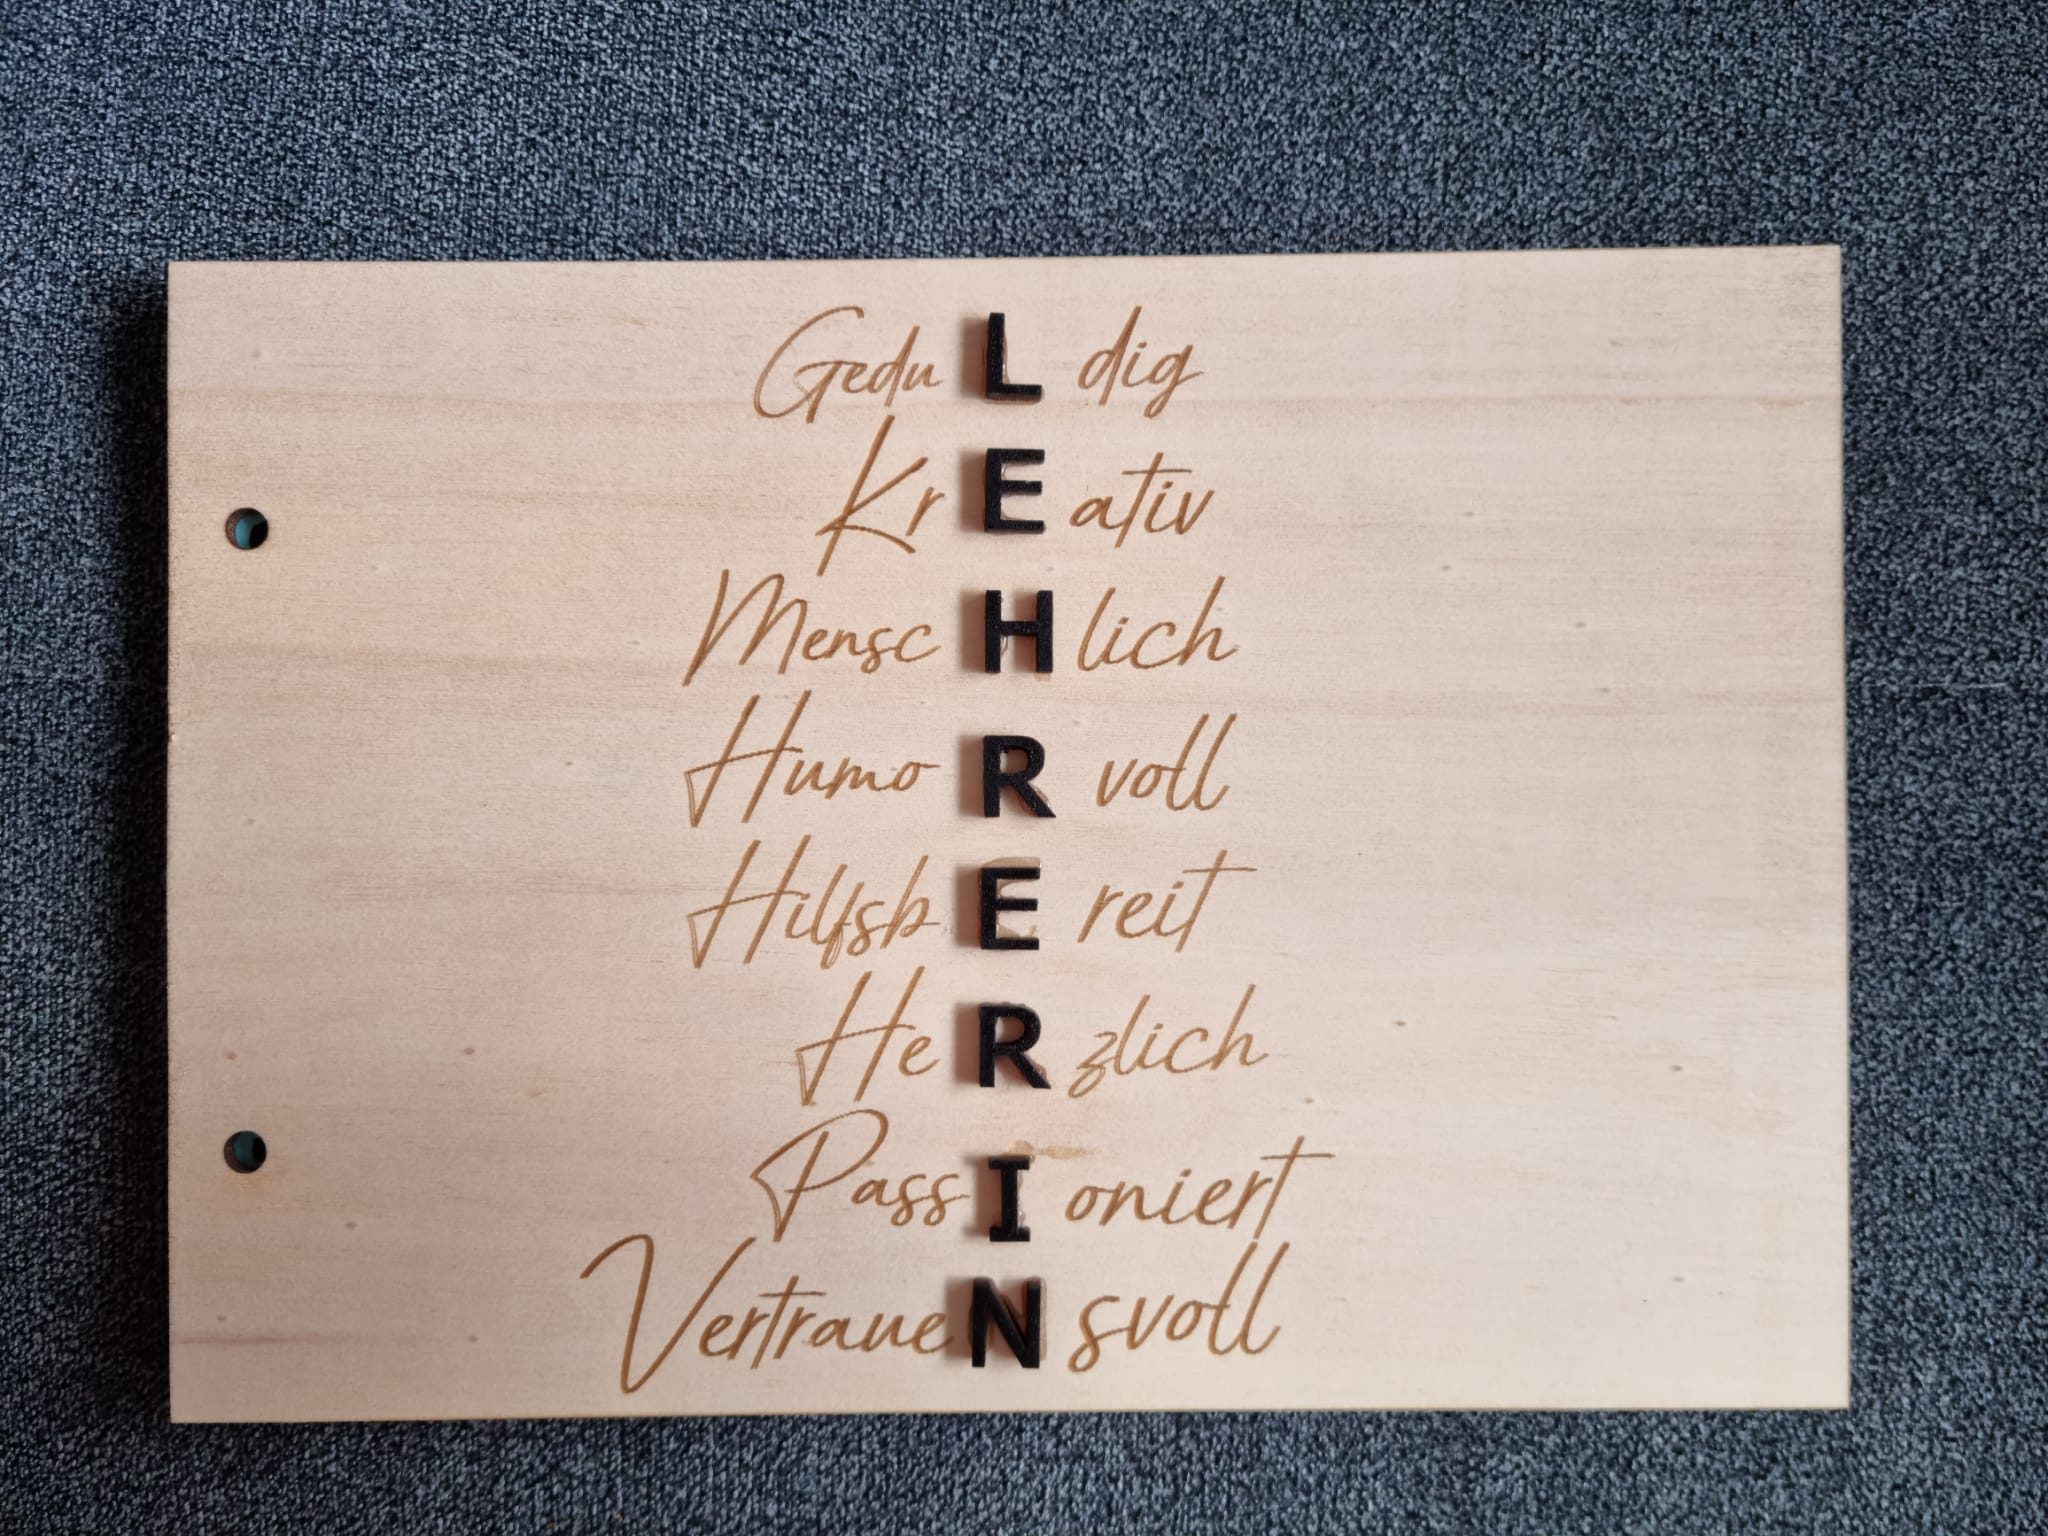 GeduLdig
KrEativ
MenscHlich
HumoRvoll
HilfsbEreit
HeRzlich
PassIoniert
VertraueNsvoll